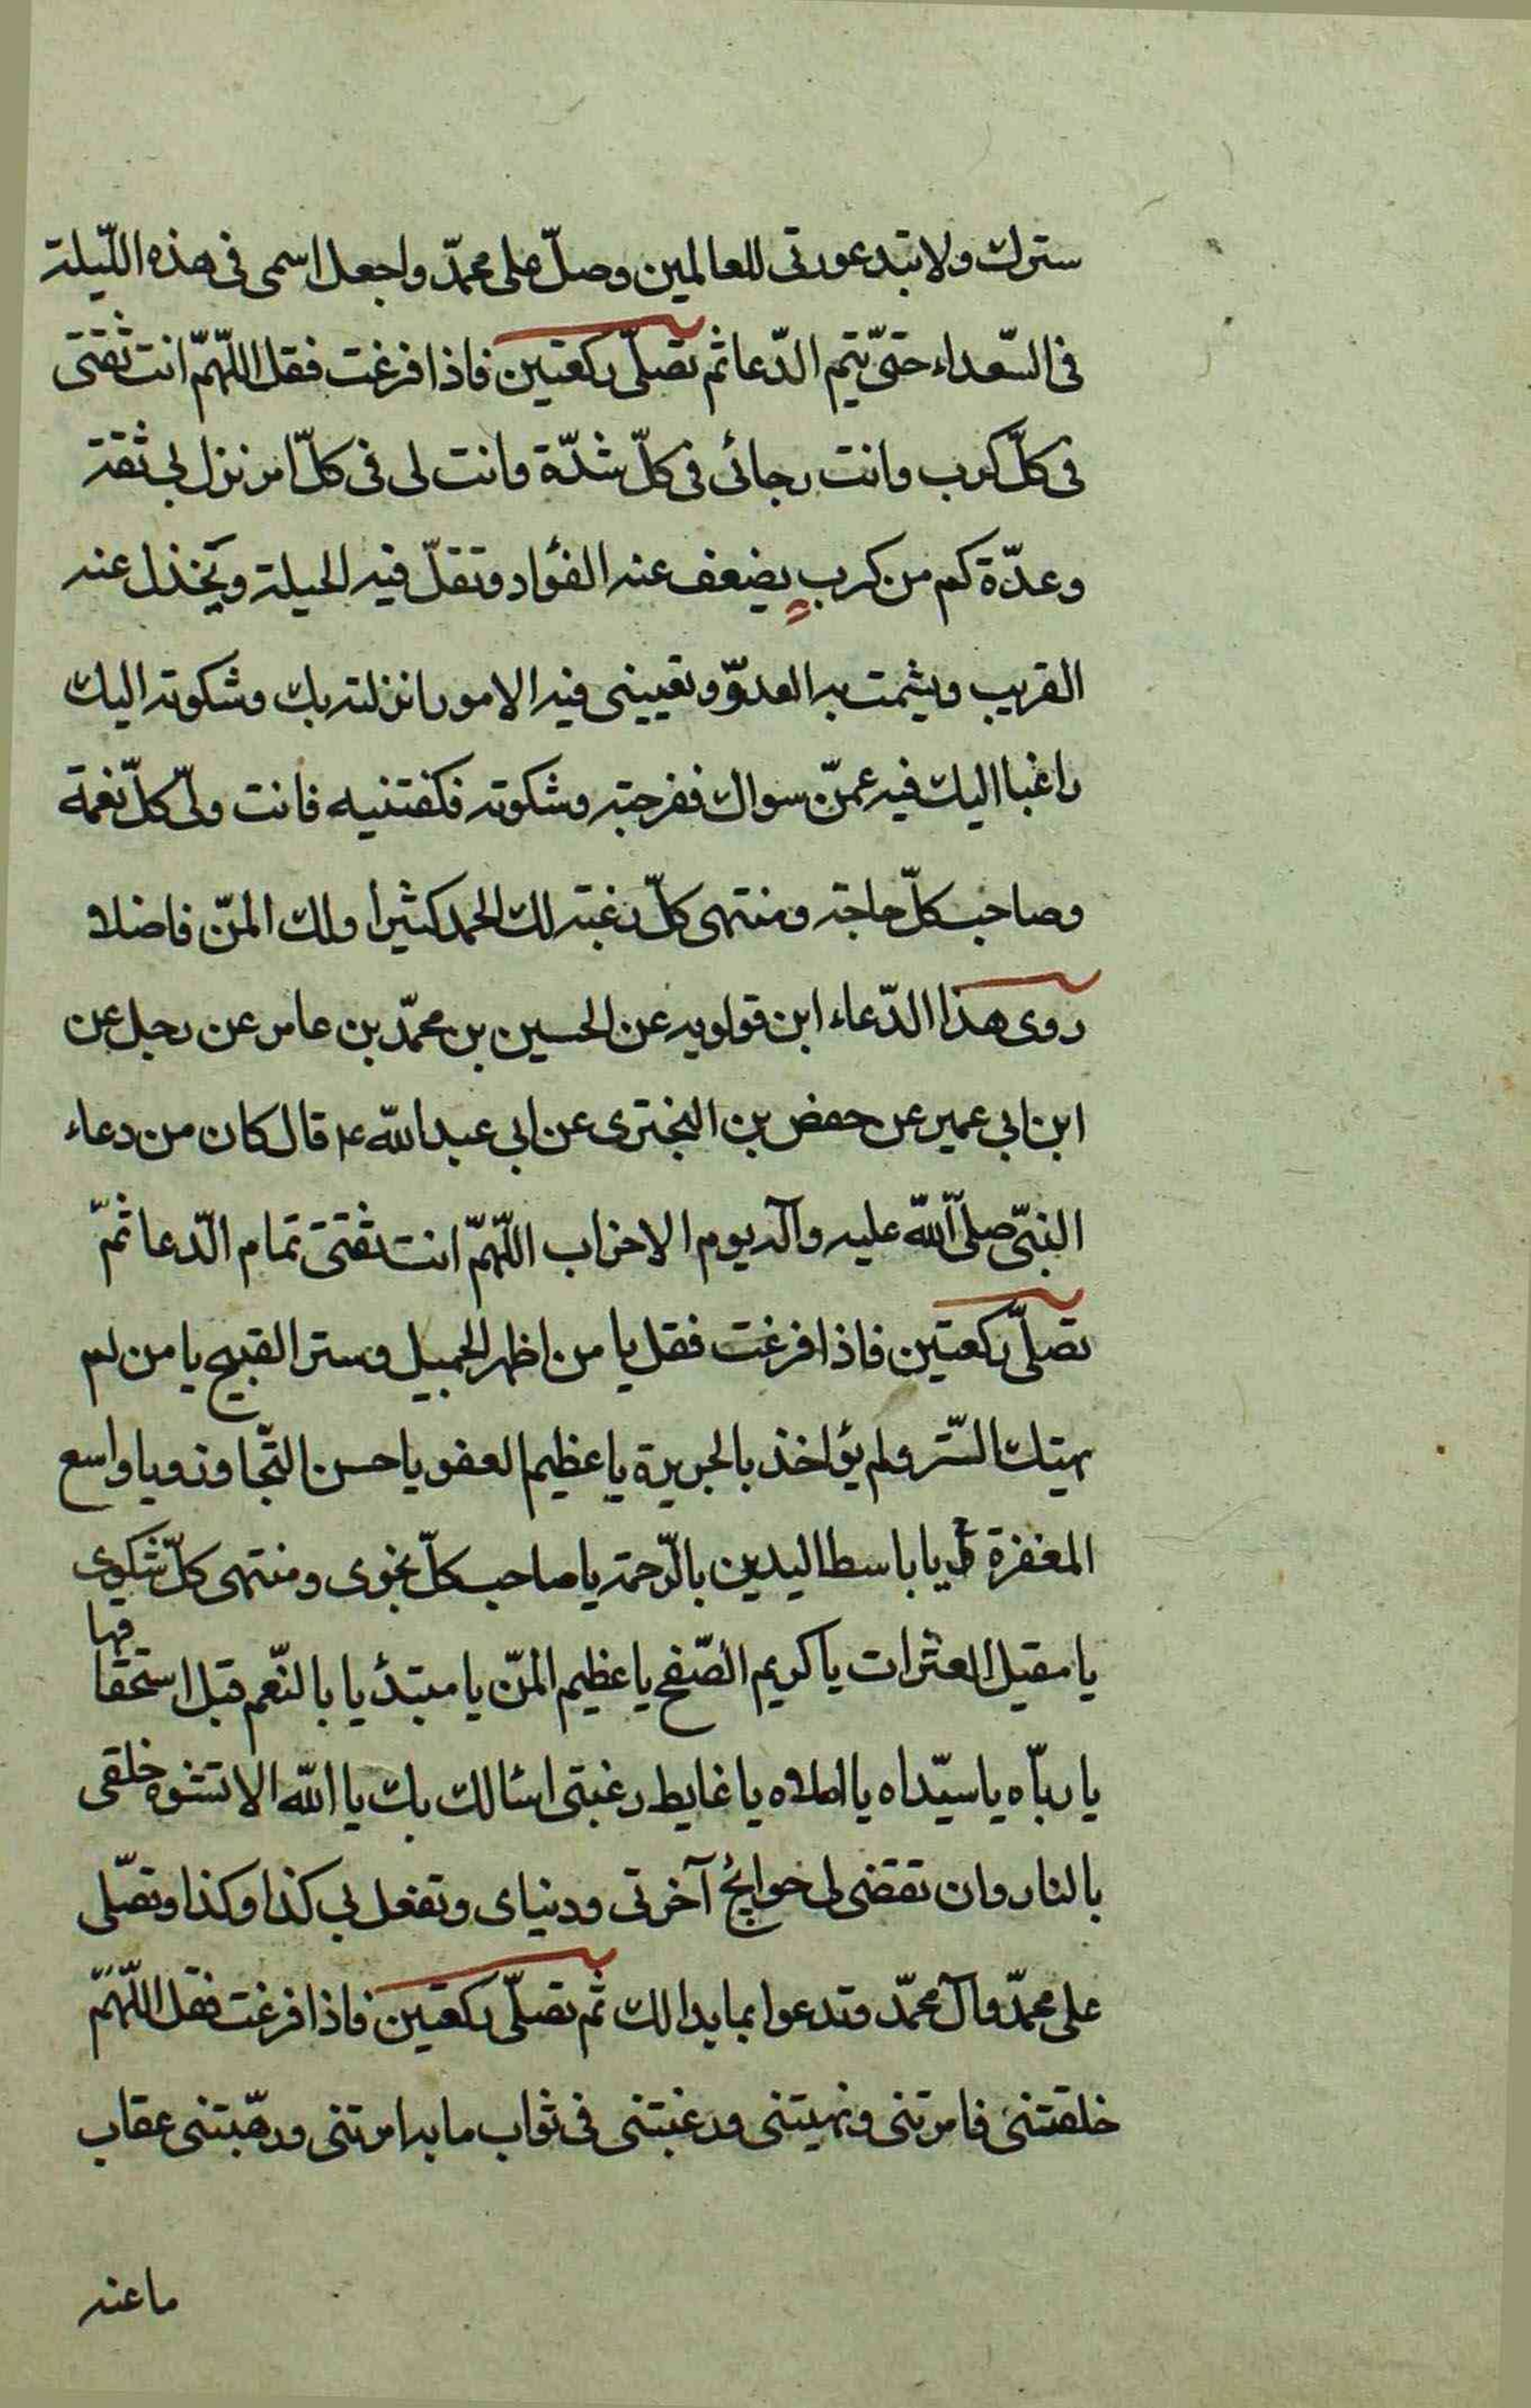 سترك ولا تبد عورتی للعالمین وصلّ علی محمدّ واجعل اسمی فی هذه اللّیلة
فی السّعداء حتیّ تتم الدّعا ثم تصلّی رکعتین فاذا فرغت فقل اللّهمّ انت ثقتی
فی کلّ کرب وانت رجائی فی کلّ شدّة وانت لی فی کلّ امر نزل بی ثقة
وعدّة کم من کربٍ یضعف عنه الفؤاد وتقلّ فیه الحیلة ویخذل عنه
القریب ویشمت به العدوّ وتعیینی فیه الامور انزلته بك وشکوته الیك
راغبا الیك فیه عمنّ سواك ففرجته وشکوته فکفتنیه فانت ولیّ کلّ نعمة
وصاحب کلّ حاجة ومنتهی کلّ رغبة لك الحمد کثیرا ولك المنّ فاضلا
روی هذا الدّعاء ابن قولویه عن الحسین بن محمدّ بن عامر عن رجل عن
ابن ابی عمیر عن حفض بن البختری عن ابی عبد الله ع قال کان من دعاء
النبیّ صلیّ اللّه علیه وآله یوم الاحزاب اللّهمّ انت ثقتی تمام الدّعا ثمّ
تصلّی رکعتین فاذا فرغت فقل یا من اظهر الجمیل وستر القبیح یا من لم
یهتك السّتر ولم یؤاخذ بالجریرة یا عظیم العفو یا حسن التّجاوز ویا واسع
المغفرة یا باسط الیدین بالرّحمة یا صاحب کلّ نجوی ومنتهی کلّ شکوی
یا مقیل العثرات یا کریم الصّفح یا عظیم المنّ یا مبتدئا بالنّعم قبل استحقاقها
یا ربّاه یا سیّداه یا املاه یا غایط رغبتی اسئالك بك یا اللّه الا تشوه خلقی
بالنار وان تقضی لی حوایج آخرتی ودنیای وتفعل بی کذا وکذا وتصّلی
علی محمدّ وآل محمدّ وتدعوا بما بدا لك ثم تصلّی رکعتین فاذا فرغت فقل اللّهمّ
خلقتنی فامرتنی ونهیتنی ورغبتنی فی ثواب ما به امرتنی ورهّبتنی عقاب
ما عنه